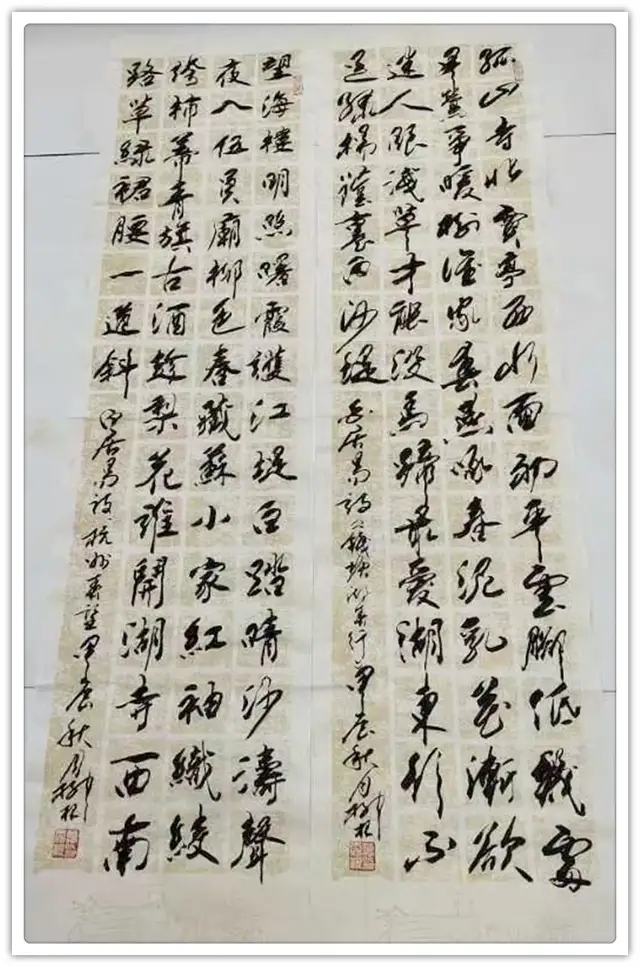 孤山寺北賈亭西水面初平雲腳低幾處
早鶯爭暖樹誰家春燕啄春泥亂花漸欲
迷人眼淺草才能沒馬蹄最愛湖東行不
足綠楊陰裏白沙堤
白居易詩錢塘湖春行甲辰秋月
望海樓明照曙霞護江堤白踏晴沙濤聲
夜入伍員廟柳色春藏蘇小家紅袖織綾
誇柿蒂青旗沽酒趁梨花誰開湖寺西南
路草綠裙腰一道斜
白居易詩杭州春望甲辰秋月